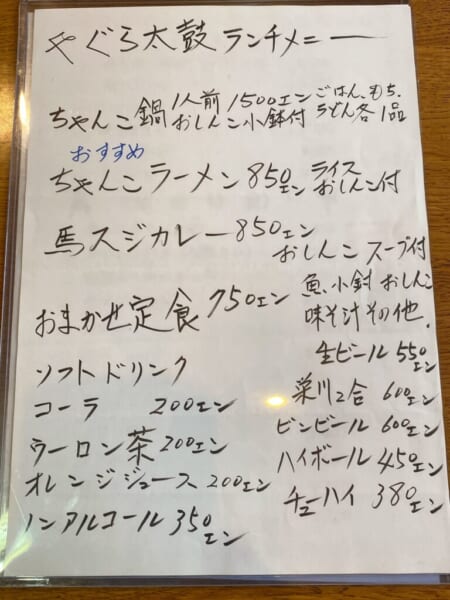 やぐら太鼓 ランチメニー
ちゃんこ鍋 1人前 1500エン ごはん、もち、
おしんこ小鉢付 うどん各1品
おすすめ
ちゃんこラーメン 850エン ライス
おしんこ付
馬スジカレー 850エン
おしんこ スープ付
おまかせ定食 750エン 魚、小鉢 おしんこ
味そ汁その他.
ソフトドリンク
コーラ 200エン
ウーロン茶 200エン
オレンジジュース 200エン
ノンアルコール 350エン
生ビール 550エン
栄川2合 600エン
ビンビール 600エン
ハイボール 450エン
チューハイ 380エン